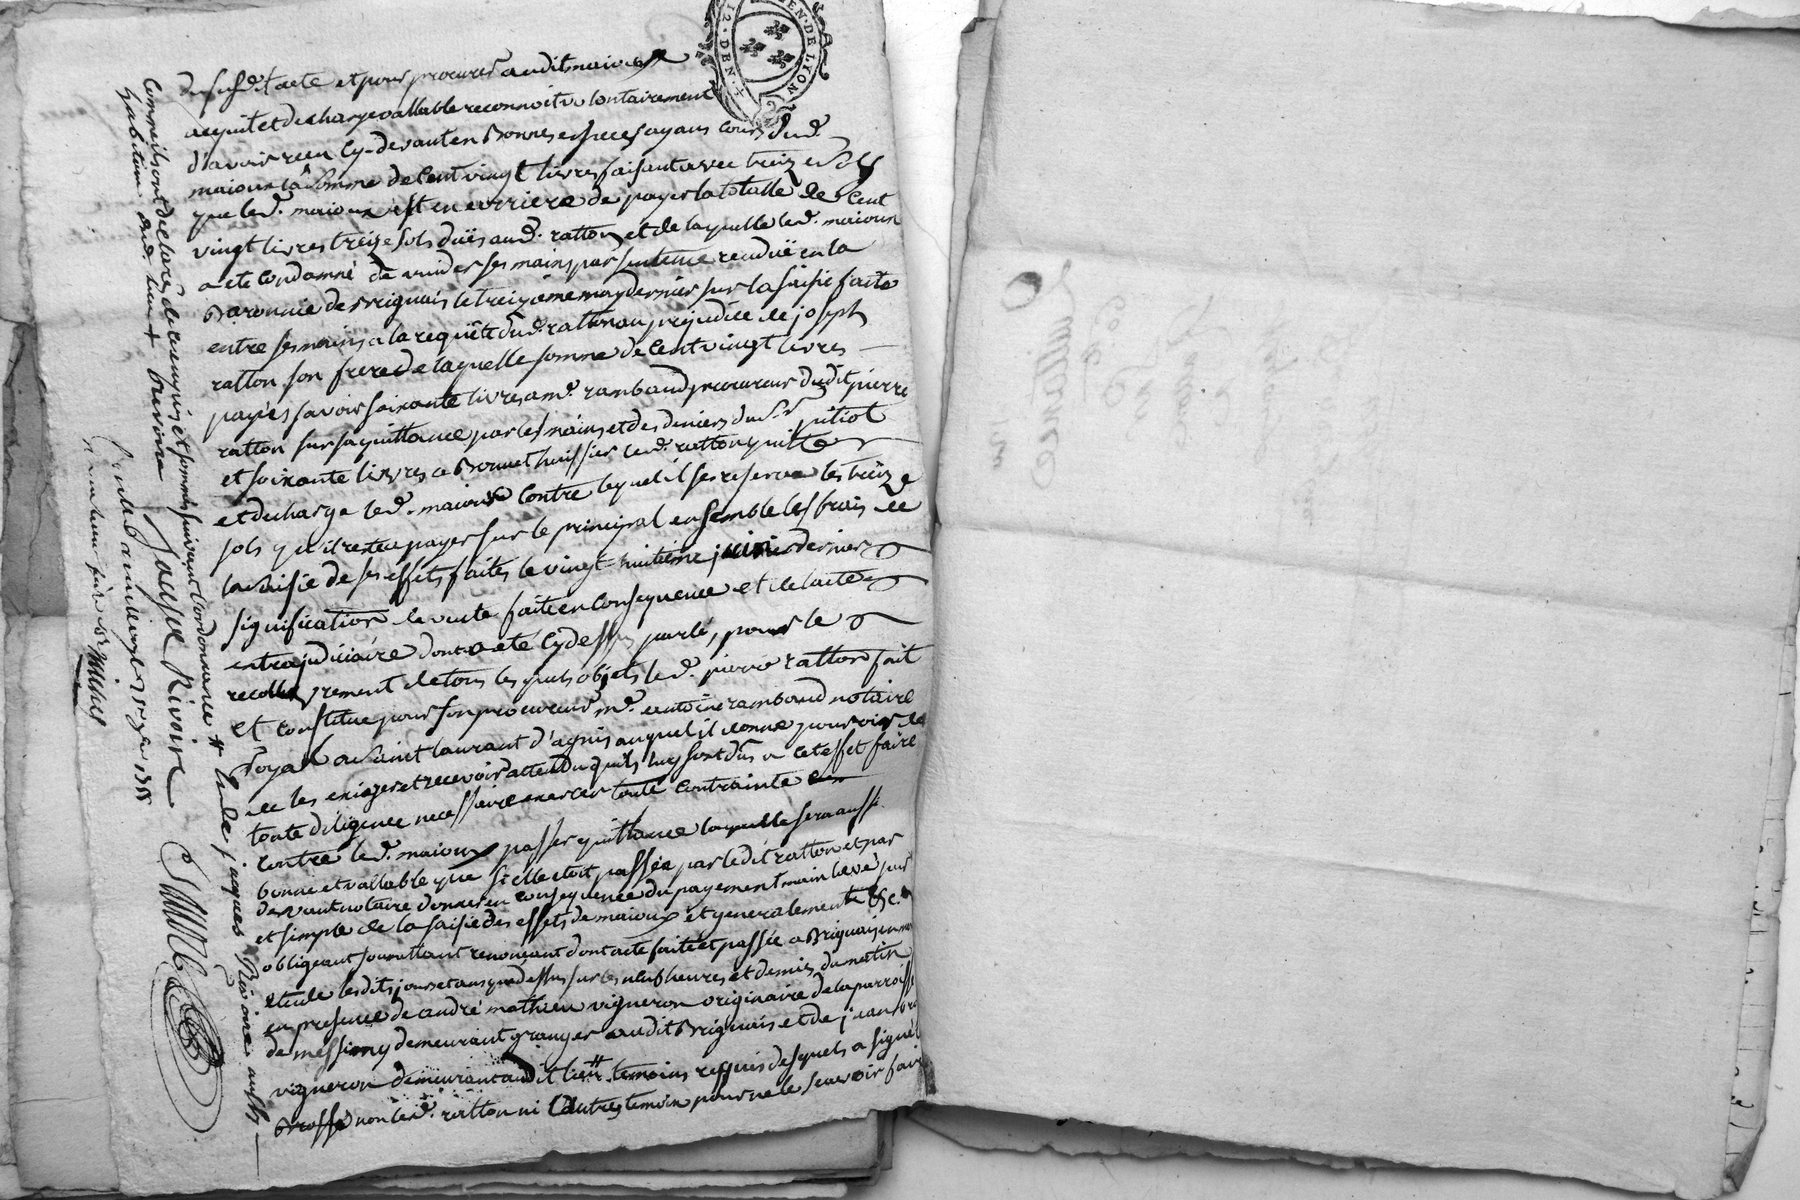 GEN. DE LYON
12. DEN.
du susd. acte et pour procurer audit maioux
acquit et decharge vallable reconnoit volontairement
d'avoir reçu cy-devant en bonnes especes ayans cours dud.
maioux la somme de cent vingt livres faisant avec treize sols
que led. maioux est en arriere de payer la totalle de cent
vingt livres treize sols duës aud. ratton et de laquelle led. maioux
a eté condamné de vuider ses mains par sentence renduë en la
Baronnie de Brignais le treizieme may dernier sur la saisie faite
entre ses mains a la requête dud. ratton au prejudice de joseph
ratton son frere de laquelle somme de cent vingt livres
payées savoir soixante livres a me. rambaud procureur dudit pierre
ratton sur sa quittance par les mains et des deniers du Sr pitiot
et soixante livres a Bonnet huissier led. ratton quitte
et decharge led. maioux contre lequel il se reserve les treize
sols qu'il reste a payer sur le principal ensemble les frais de
la saisie de ses effets faites le vingt-huitieme juin dernier
signification de vente faite en consequence et de l'acte
extrajudiciaire dont a eté cy dessus parlé, pour le
recouvrement de tous lesquels objets led. pierre ratton fait
et constitue pour son procureur me. antoine rambaud notaire
royal a Saint laurant d'agnis auquel il donne pouvoir de
de les exiger et recevoir attendu qu'ils luy sont dûs a cet effet faire
toute diligence necessaire exercer toute contrainte
contre led. maioux passer quittance laquelle sera aussi
bonne et vallable que si elle etoit passée par ledit ratton et par
devant notaire donner en consequence du payement main levé pur
et simple de la saisie des effets de maioux et generalement &c.
obligeant soumettant renonçant dont acte faite et passée a Brignais en mon
etude lesdits jour et an que dessus sur les neuf heures et demies du matin
en presence de andré mathieu vigneron originaire de la parroisse
de messimy demeurant granger audit Brignais et de jean
vigneron demeurant audit lieu temoins requis desquels a signé
Brosse non led. ratton ni l'autre temoin pour ne le sçavoir faire
comme ils ont declaré de ce enquis et sommés suivant l'ordonnance # et de jacques Rivoire aussy
habitant dud. lieu + Rivoire Jacque Rivoire